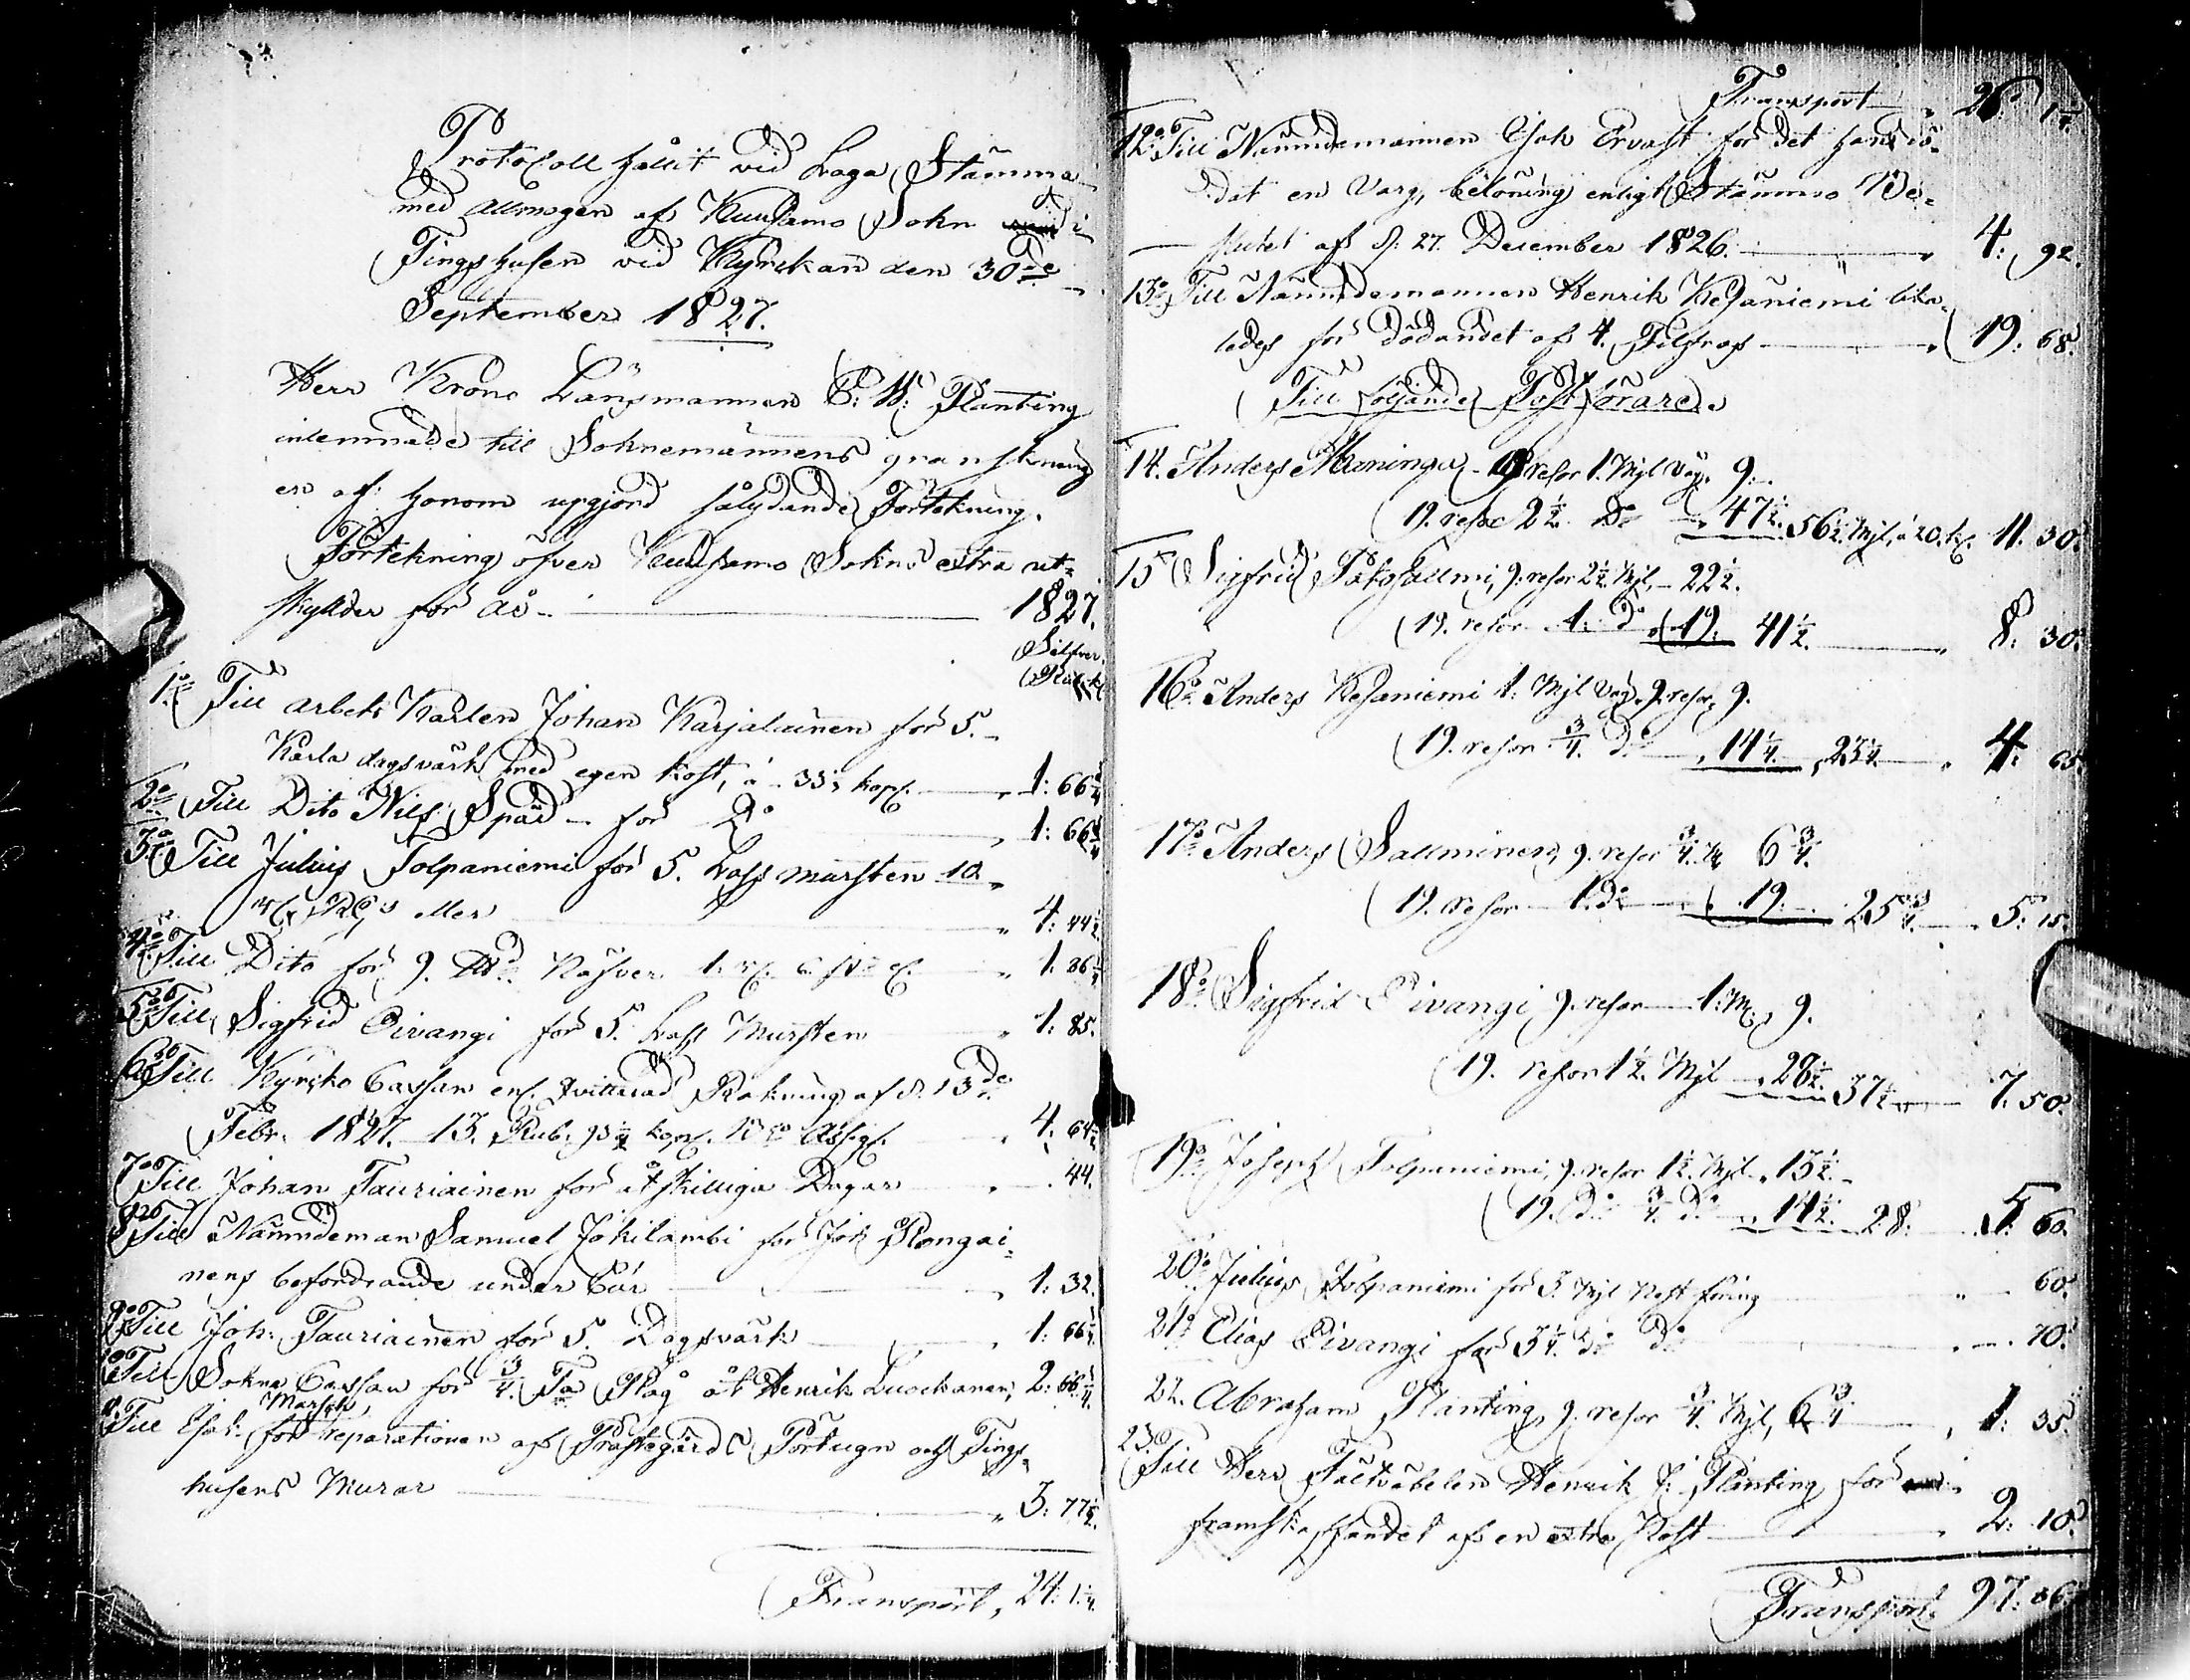 Protocoll hållit vid Laga Stämma
med Allmogen af Kuusamo Sokn i
Tingshusen vid Kyrckan den 30de
September 1827.
Herr Krono Länsmannen C: W: Planting
inlemnade till Soknemännens granskning
en af honom upgjord sålydande Förtekning.
Förtekning öfver Kuusamo Sokns extra ut=
skylder för år 1827.
Silfver.
Rub. k.
1o Till arbets Karlen Johan Karjalainen för 5.
Karla dagsvärk med egen kost, à 33¼ kop. 1: 66¼
2o Till Dito Nils Späd för Do 1: 66¼
3o Till Julius Tolpaniemi för 5. Lass mursten 10
eller 4: 44½
4o Till Dito för 9. Näfver 1. 36¼
5o Till Sigfrid Pivangi för 5. Lass Mursten 1: 85.
6o Till Kyrcko Cassan enl. qvitterad Räkning af d. 13de
Febr. 1827. 13. Rub. 93¼ kop. Bco Assig. 4: 64½
7o Till Johan Tauriainen för åtskilliga Dagar 44.
8o Till Nämndeman Samuel Jokilambi för Joh. Rongai=
nens befordrande under Cur 1: 32.
9o Till Joh. Tauriainen för 5. Dagsvärk 1: 66¼
10 Till Sokne Cassan för ¾. Ta Råg åt Henrik Luockanen, 2: 66¼
11. Till Esak: Marsch, för reparationen af Prästegårds Portugn och Tings=
husens Murar 3: 77½.
Transport, 24: 1¼.
Transport 26: 1¼
12o Till Nämndemannen Esak Ervast för det han dö=
dat en Varg, belöning enligt Stämmo Be=
slutet af d: 27. December 1826. 4: 92.
13o Till Nämndemannen Henrik Kesäniemi lika=
ledes för dödandet af 4. Filfras 19: 68.
Till följande Post förare.
14. Anders Maninga 9 resor 1. Mjl väg. 9.
19. resor 2½ Do 47½. 56½. Mjl, à 20. k. 11. 30.
15 Sigfrid Påtosallmi, 9. resor 2½ Mjl, 22½.
19. resor 1. do 19: 41½. 8: 30.
16o Anders Kesäniemi 1: Mjl väg. 9. resor, 9.
19. resor ¾. Do 14¼. 23¼. 4. 65.
17o Anders Sallminen, 9. resor ¾. M 6¾.
19. resor 1. do 19. 25¾. 5: 15.
18o Sigfrid Pivangi 9. resor 1: M, 9.
19. resor 1½. Mjl 28½. 37½ 7. 50.
19o Joseph Tolpaniemi, 9. resor 1½. Mjl. 13½.
19. Do ¾. Do 14½. 28. 5. 60.
20o Julius Tolpaniemi för 3. Mjl Post föring 60.
21o Elias Pivangi för 3½. Do Do 70.
22. Abraham Planting, 9. resor ¾. Mjl, 6¾ 1: 35.
23. Till Herr Fältväbelen Henrik J: Planting för
framskaffandet af en extra Post 2: 10.
Transport 97: 06